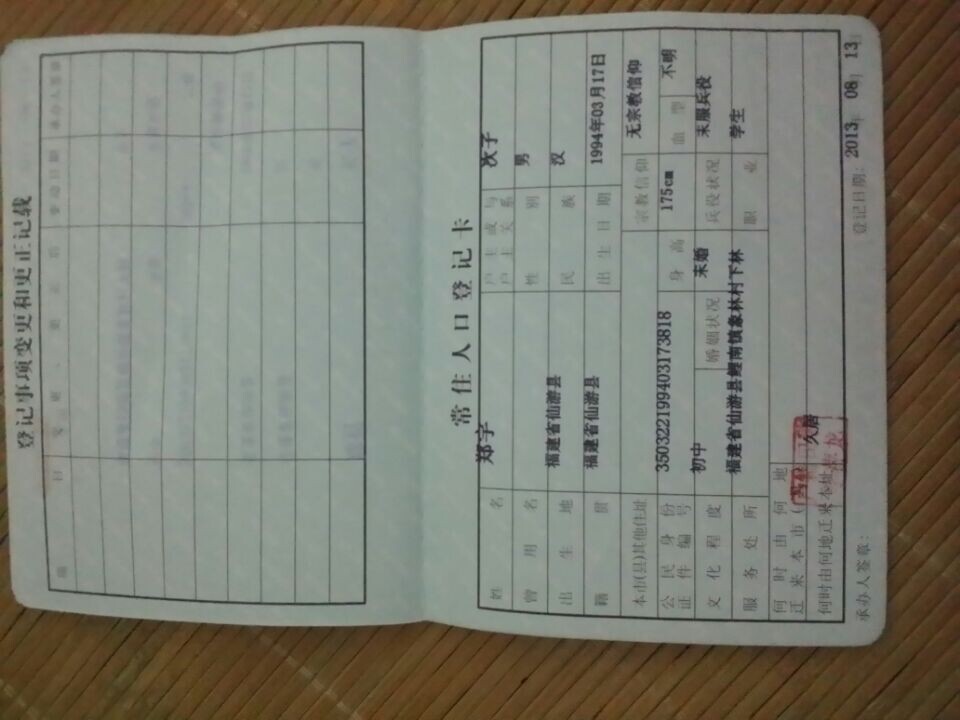 登记事项变更和更正记载
常住人口登记卡
姓名 郑宇 户主或与户主关系 次子
曾用名 性别 男
出生地 福建省仙游县 民族 汉
籍贯 福建省仙游县 出生日期 1994年03月17日
本市(县)其他住址 宗教信仰 无宗教信仰
公民身份证件编号 350322199403173818 身高 175cm 血型 不明
文化程度 初中 婚姻状况 未婚 兵役状况 未服兵役
服务处所 福建省仙游县鲤南镇象林村下林 职业 学生
何时由何地迁来本市(
何时由何地迁来本址 久居
承办人签章: 登记日期: 2013年08月13